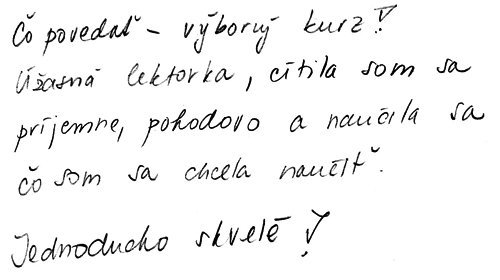 Čo povedať – výborný kurz!
Úžasná lektorka, cítila som sa
príjemne, pohodovo a naučila sa
čo som sa chcela naučiť.
Jednoducho skvelé!